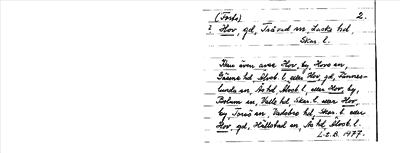 (Forts) 2.
I Hov, gd, Trävad sn, Laske hd,
Skar. l.
Kan även avse Hov, by, Hovs sn,
Göstrings hd, Älvsb. l. eller Hov, gd, Finne-
lunda sn, As hd, Älvsb. l. eller Hov, by,
Bolum sn, Valle hd, Skar. l. eller Hov,
by, sn, Vadsbo hd, Skar. l. eller
Hov, gd, Hällstad sn, Ås hd, Älvsb. l.
L-E.B. 1977.